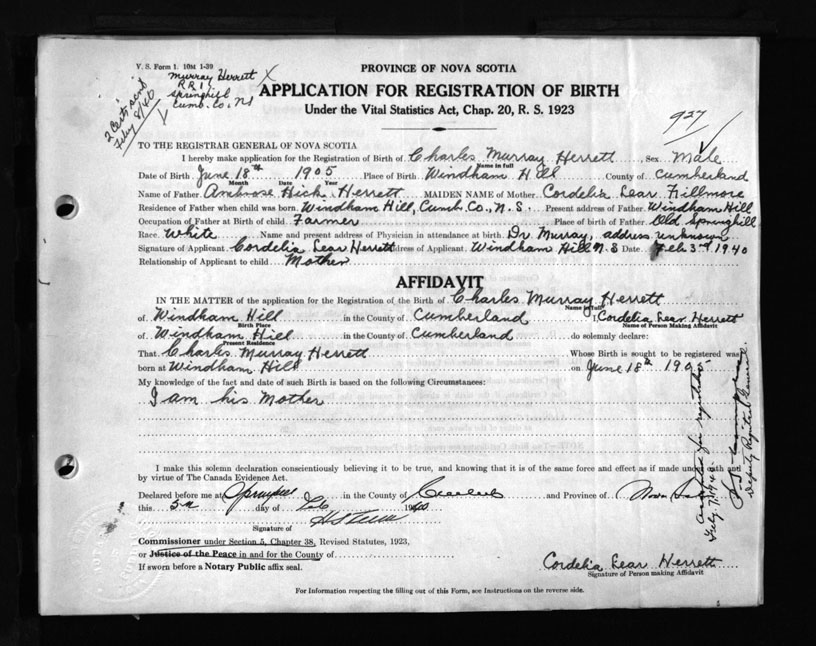 V. S. Form 1. 10M 1-39
Murray Herrett
RR 1
Springhill
Cumb. Co., NS
2 Cert's sent
Feb'y 8/40
PROVINCE OF NOVA SCOTIA
APPLICATION FOR REGISTRATION OF BIRTH
Under the Vital Statistics Act, Chap. 20, R. S. 1923
927
TO THE REGISTRAR GENERAL OF NOVA SCOTIA
I hereby make application for the Registration of Birth of Charles Murray Herrett Sex Male
Name in full
Date of Birth June 18th 1905 Place of Birth Windham Hill County of Cumberland
Month Date Year
Name of Father Ambrose Hicks Herrett MAIDEN NAME of Mother Cordelia Lear Fillmore
Residence of Father when child was born Windham Hill, Cumb. Co., N. S. Present address of Father Windham Hill
Occupation of Father at Birth of child Farmer Place of birth of Father Old Springhill
Race White Name and present address of Physician in attendance at birth Dr Murray, address unknown
Signature of Applicant Cordelia Lear Herrett Address of Applicant Windham Hill N. S Date Feb 3rd 1940
Relationship of Applicant to child Mother
AFFIDAVIT
IN THE MATTER of the application for the Registration of the Birth of Charles Murray Herrett
Name in full
of Windham Hill in the County of Cumberland I, Cordelia Lear Herrett
Birth Place Name of Person Making Affidavit
of Windham Hill in the County of Cumberland do solemnly declare:
Present Residence
That Charles Murray Herrett Whose Birth is sought to be registered was
born at Windham Hill on June 18th 1905
My knowledge of the fact and date of such Birth is based on the following Circumstances:
I am his Mother
I make this solemn declaration conscientiously believing it to be true, and knowing that it is of the same force and effect as if made under oath and
by virtue of The Canada Evidence Act.
Declared before me at Springhill in the County of and Province of Nova
this day of Feb 1940
Signature of
Commissioner under Section 5, Chapter 38, Revised Statutes, 1923,
or Justice of the Peace in and for the County of
If sworn before a Notary Public affix seal.
Cordelia Lear Herrett
Signature of Person making Affidavit
Accepted for registration
Deputy Registrar General.
For Information respecting the filling out of this Form, see Instructions on the reverse side.